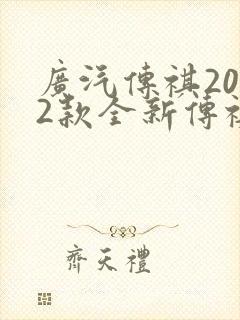 廣汽傳祺20
2款全新傳祺
齊天禮